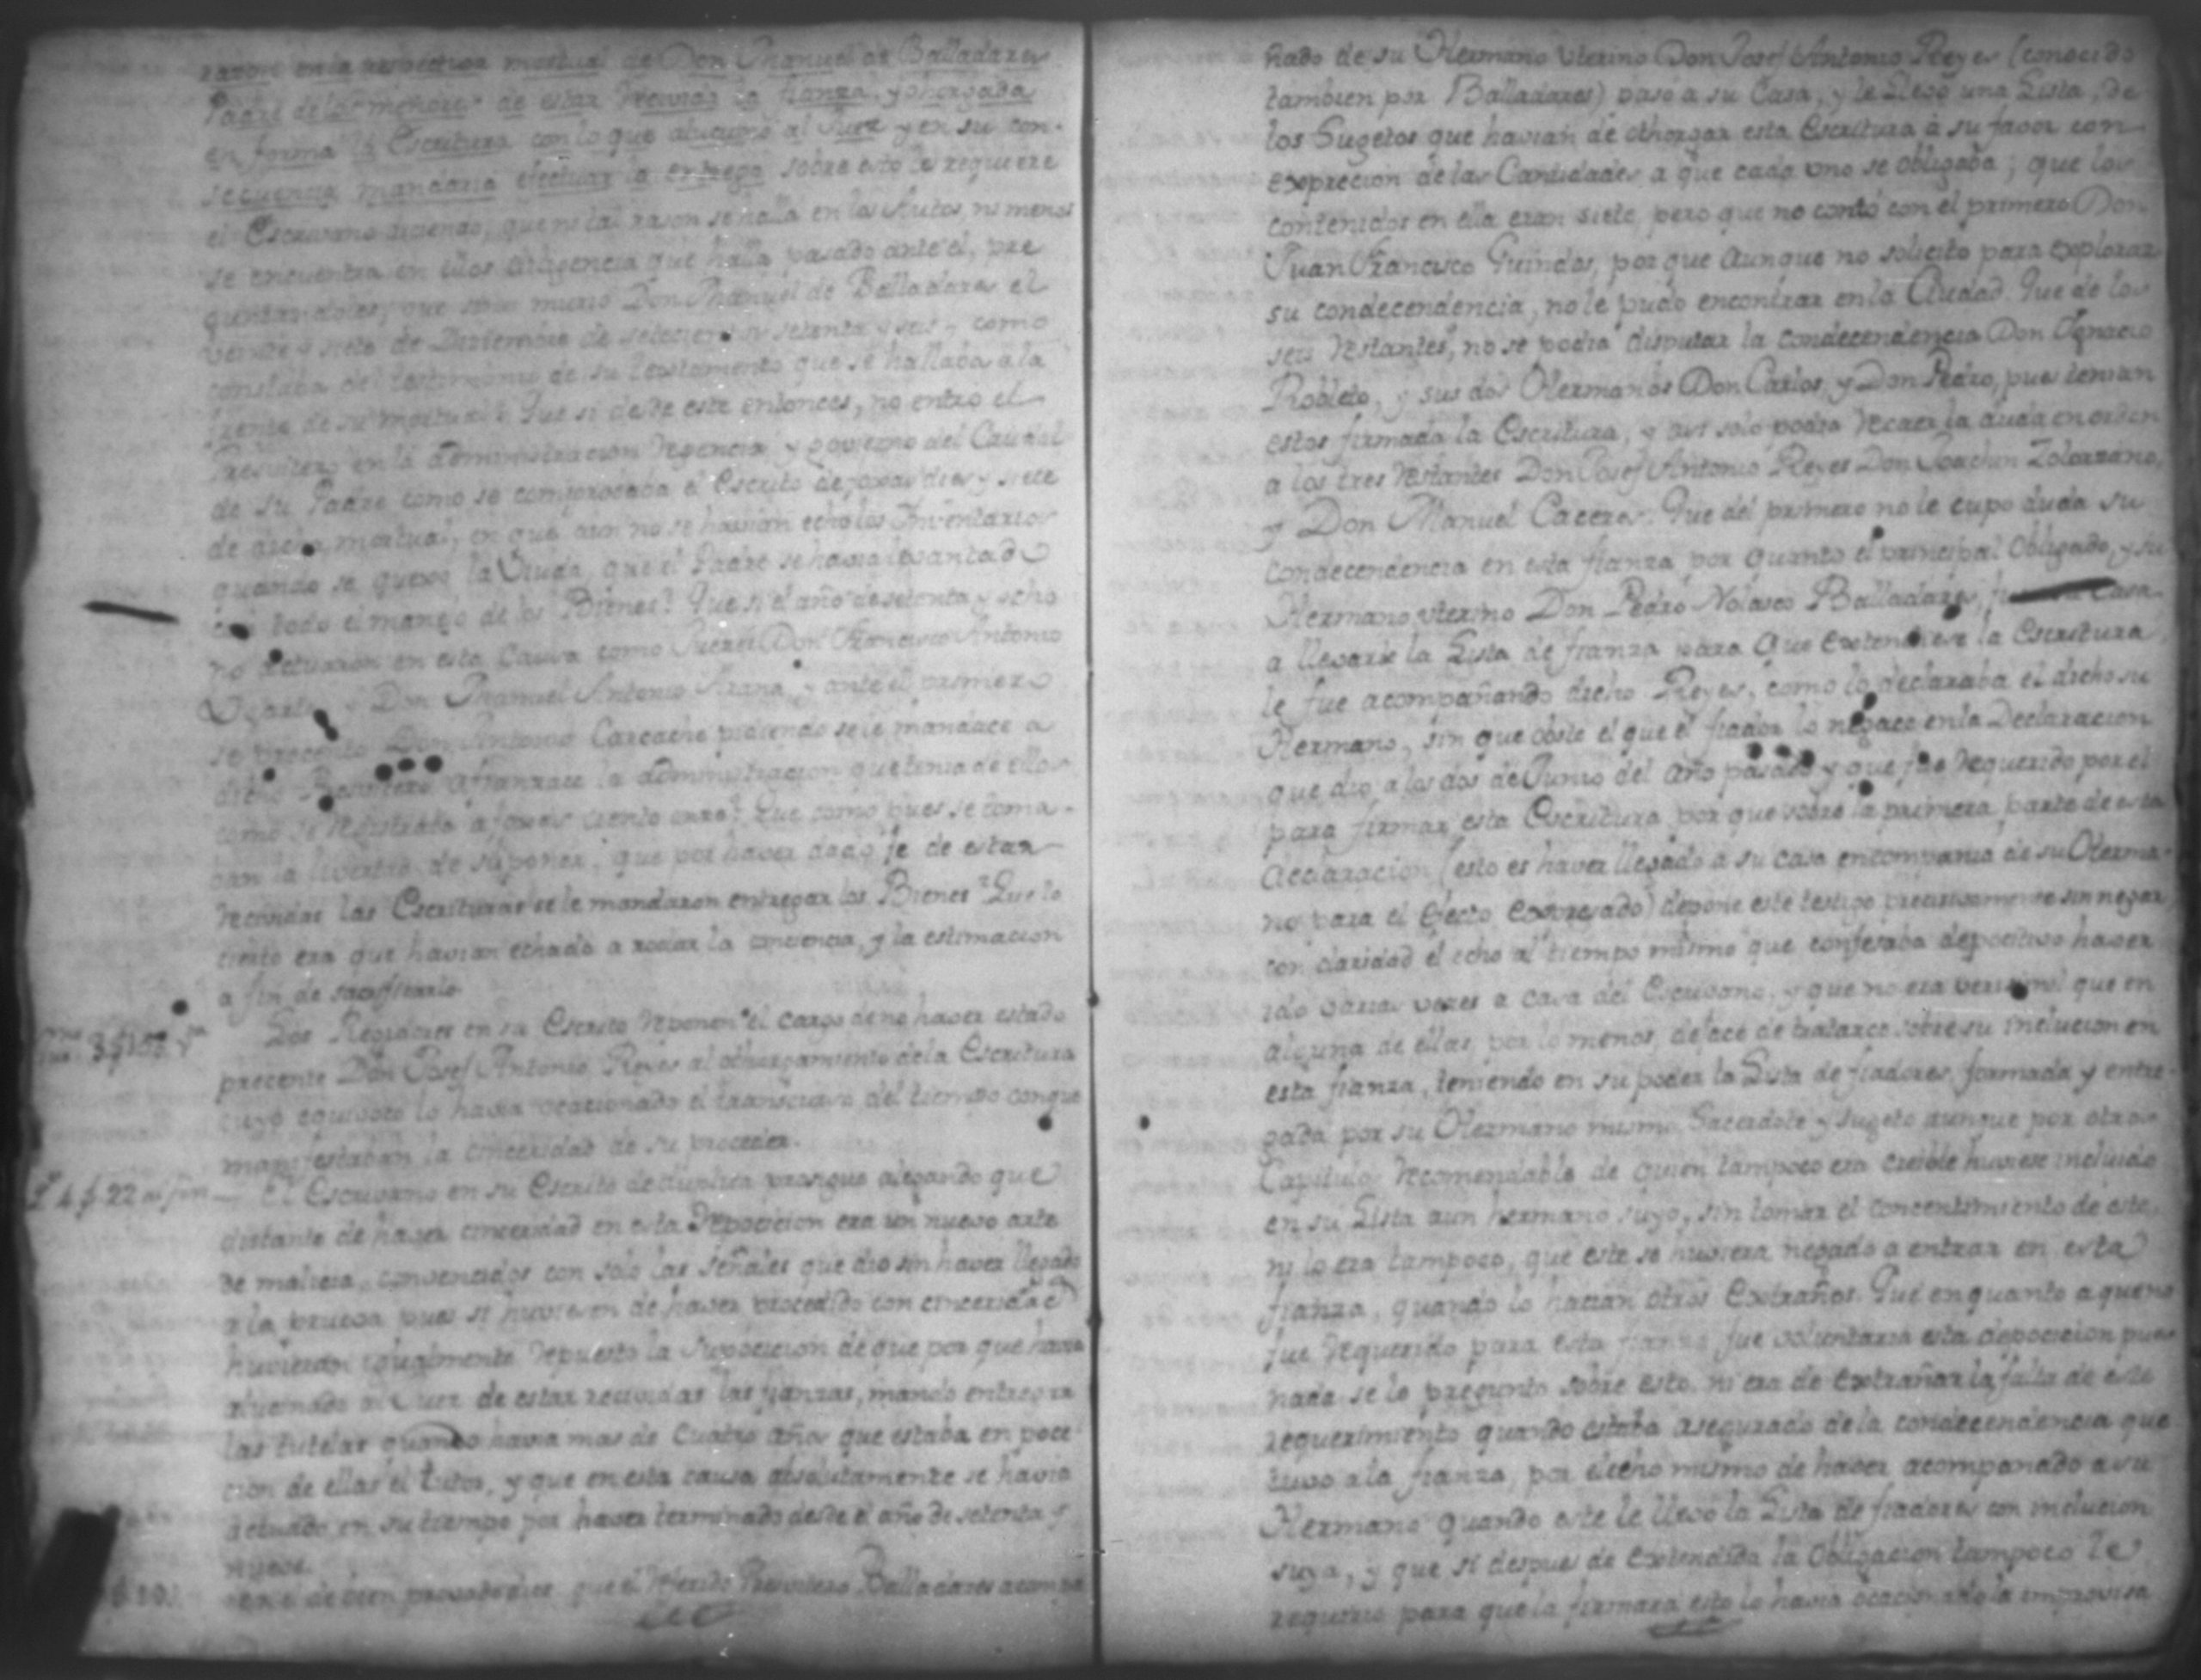 razon en la respectiva mortual de Don Manuel de Balladares
Padre de los menores de estar recivida la fianza, y othorgada
en forma la Escritura con lo que al Juez y en su con-
secuencia mandaria efectuar la entrega sobre esto le requiere
el Escrivano diciendo, que ni tal razon se halla en los Autos, ni menos
se encuentra en ellos diligencia que halla pasado ante el, pre
guntandoles, que si murio Don Manuel de Balladares el
veinte y siete de Diziembre de setecientos setenta y seis, como
constaba del testimonio de su testamento que se hallaba a la
frente de su mortual? Que si desde este entonces, no entro el
Presvitero en la administracion regencia y govierno del Caudal
de su Padre como se comprovaba el Escrito de foxas dies y siete
de dicha mortual, en que aun no se havian echo los Inventarios
quando se quexo la Viuda, que el Padre se havia levantado
con todo el manejo de los Bienes? Que si el año de setenta y ocho
no actuaron en esta Causa como Juezes Don Francisco Antonio
Ugarte, y Don Manuel Antonio Arana, y ante el primero
se precento Don Antonio Carcache pidiendo se le mandace a
dicho Presvitero afianzace la administracion que tenia de ellos
como se registraba a foxas ciento onze? Que como pues se toma-
ban la livertad de suponer, que por haver dado fe de estar
recividas las Escrituras se le mandaron entregar los Bienes? Que lo
cierto era que havian echado a rodar la conciencia, y la estimacion
a fin de sacrificarlo
Los Regidores en su Escrito reponen el cargo de no haver estado
precente Don Josef Antonio Reyes al othorgamiento de la Escritura
cuyo equivoco lo havia ocacionado el transcurso del tiempo con que
manifestaban la cinceridad de su proceder.
4 f. 22 al fin El Escrivano en su Escrito de duplica prosigue alegando que
distante de haver cinceridad en esta repocicion era un nuevo arte
de malicia, convencidos con solo las señales que dio sin haver llegado
a la prueva pues si huviesen de haver procedido con cinceridad
huvieran igualmente repuesto la supocicion de que por que havia
al Juez de estar recividas las fianzas, mando entregar
las tutelas quando havia mas de Cuatro años que estaba en poce
cion de ellas el tutor, y que en esta causa absolutamente se havia
actuado en su tiempo por haver terminado desde el año de setenta y
nueve.
de bien provado dice que el referido Presvitero Balladares acompa
ñado de su Hermano uterino Don Josef Antonio Reyes (conocido
tambien por Balladares) pasó a su Casa, y le llevó una Lista, de
los Sugetos que havian de othorgar esta Escritura á su favor con
exprecion de las Cantidades, a que cada uno se obligaba; que los
contenidos en ella eran siete, pero que no contó con el primero Don
Juan Francisco Guindos, por que aunque no solicito para explorar
su condecendencia, no le pudo encontrar en la Ciudad. Que de los
seis restantes, no se podia disputar la condecendencia Don Ignacio
Robleto, y sus dos Hermanos Don Carlos, y Don Pedro, pues tenian
estos firmada la Escritura, y asi solo podia recaer la duda en orden
a los tres restantes Don Josef Antonio Reyes Don Joachin Zolorzano,
y Don Manuel Caceres. Que del primero no le cupo duda su
condecendencia en esta fianza, por quanto el principal Obligado, y su
Hermano uterino Don Pedro Nolasco Balladares, Casa
a llevarle la Lista de fianza para que extendiese la Escritura
le fue acompañando dicho Reyes, como lo declaraba el dicho su
Hermano, sin que obste el que el fiador lo negace en la Declaracion
que dio a los dos de Junio del año pasado y que fue requerido por el
para firmar esta Escritura, por que sobre la primera parte de esta
declaracion (esto es haver llegado á su casa en compania de su Herma-
no para el efecto expresado) depone este testigo precisamente sin negar
con claridad el echo al tiempo mismo que confesaba depocitivo haver
ido varias veses a casa del Escrivano, y que no era verisimil que en
alguna de ellas, por lo menos, dejace de tratarce sobre su inclucion en
esta fianza, teniendo en su poder la Lista de fiadores, formada y entre-
gada por su Hermano mismo, Sacerdote y sugeto aunque por otros
Capitulos recomendable de quien tampoco era creible huviese incluido
en su Lista a un hermano suyo, sin tomar el concentimiento de este,
ni lo era tampoco, que este se huviera negado a entrar en esta
fianza, quando lo hacian otros Extraños. Que en quanto a que no
fue requerido para esta fianza fue voluntaria esta depocicion pues
nada se le pregunto sobre esto, ni era de extrañar la falta de este
requerimiento quando estaba asegurado de la condecendencia que
tuvo a la fianza, por el echo mismo de haver acompañado a su
Hermano quando este le llevo la Lista de fiadores con inclucion
suya, y que si despues de extendida la Obligacion tampoco le
requirio para que la firmara esto lo havia ocacionado la improvisa